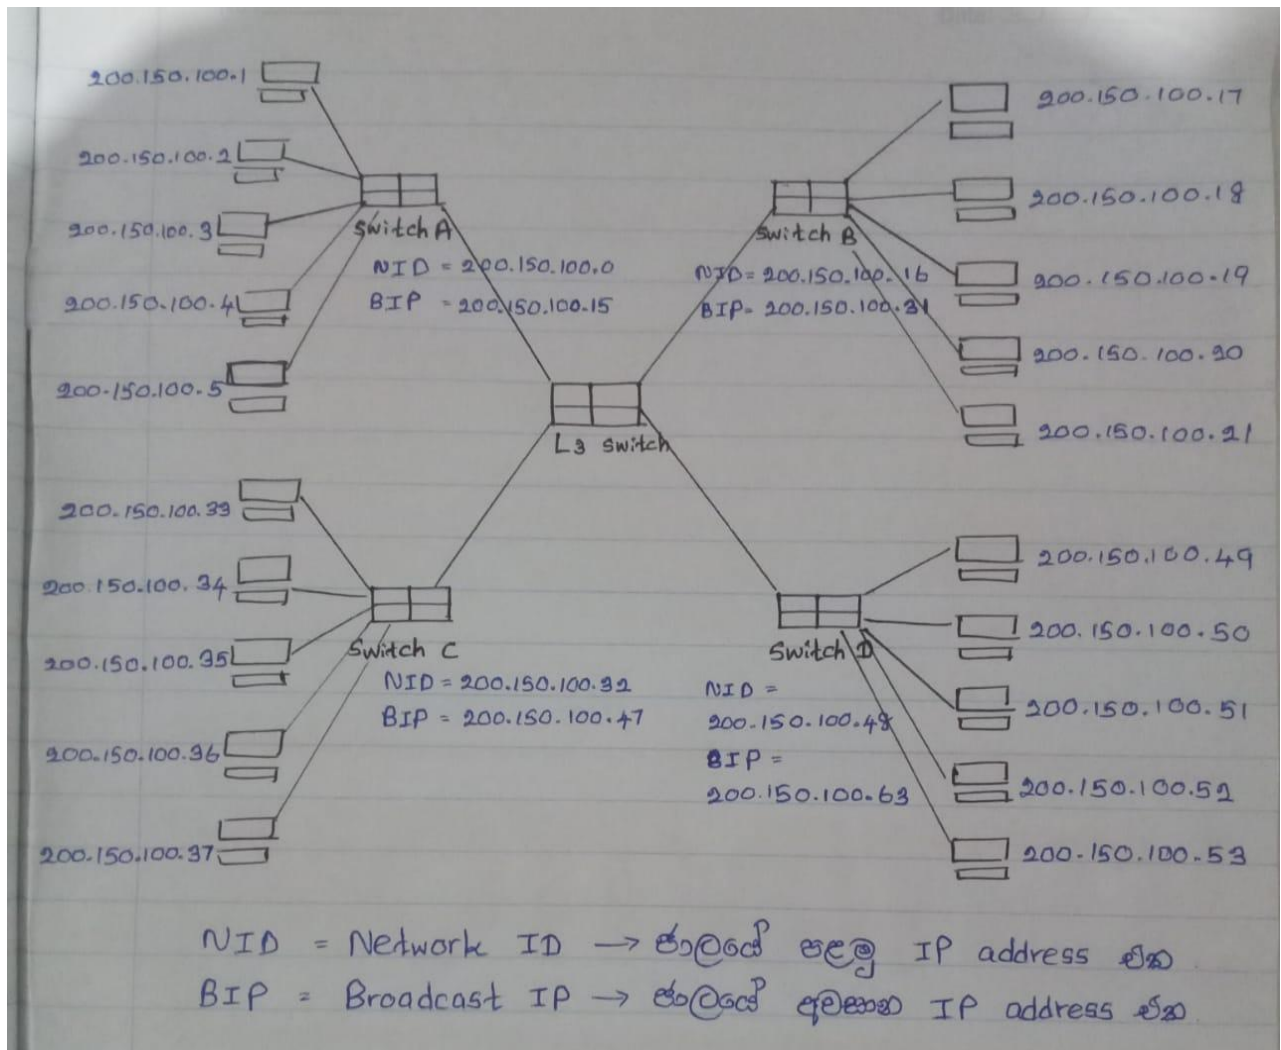 200.150.100.1
200.150.100.2
200.150.100.3
200.150.100.4
200.150.100.5
Switch A
NID = 200.150.100.0
BIP = 200.150.100.15
200.150.100.17
200.150.100.18
200.150.100.19
200.150.100.20
200.150.100.21
Switch B
NID = 200.150.100.16
BIP = 200.150.100.31
L3 Switch
200.150.100.33
200.150.100.34
200.150.100.35
200.150.100.36
200.150.100.37
Switch C
NID = 200.150.100.32
BIP = 200.150.100.47
200.150.100.49
200.150.100.50
200.150.100.51
200.150.100.52
200.150.100.53
Switch D
NID =
200.150.100.48
BIP =
200.150.100.63
NID = Network ID → ජාලයේ පළමු IP address එක
BIP = Broadcast IP → ජාලයේ අවසාන IP address එක